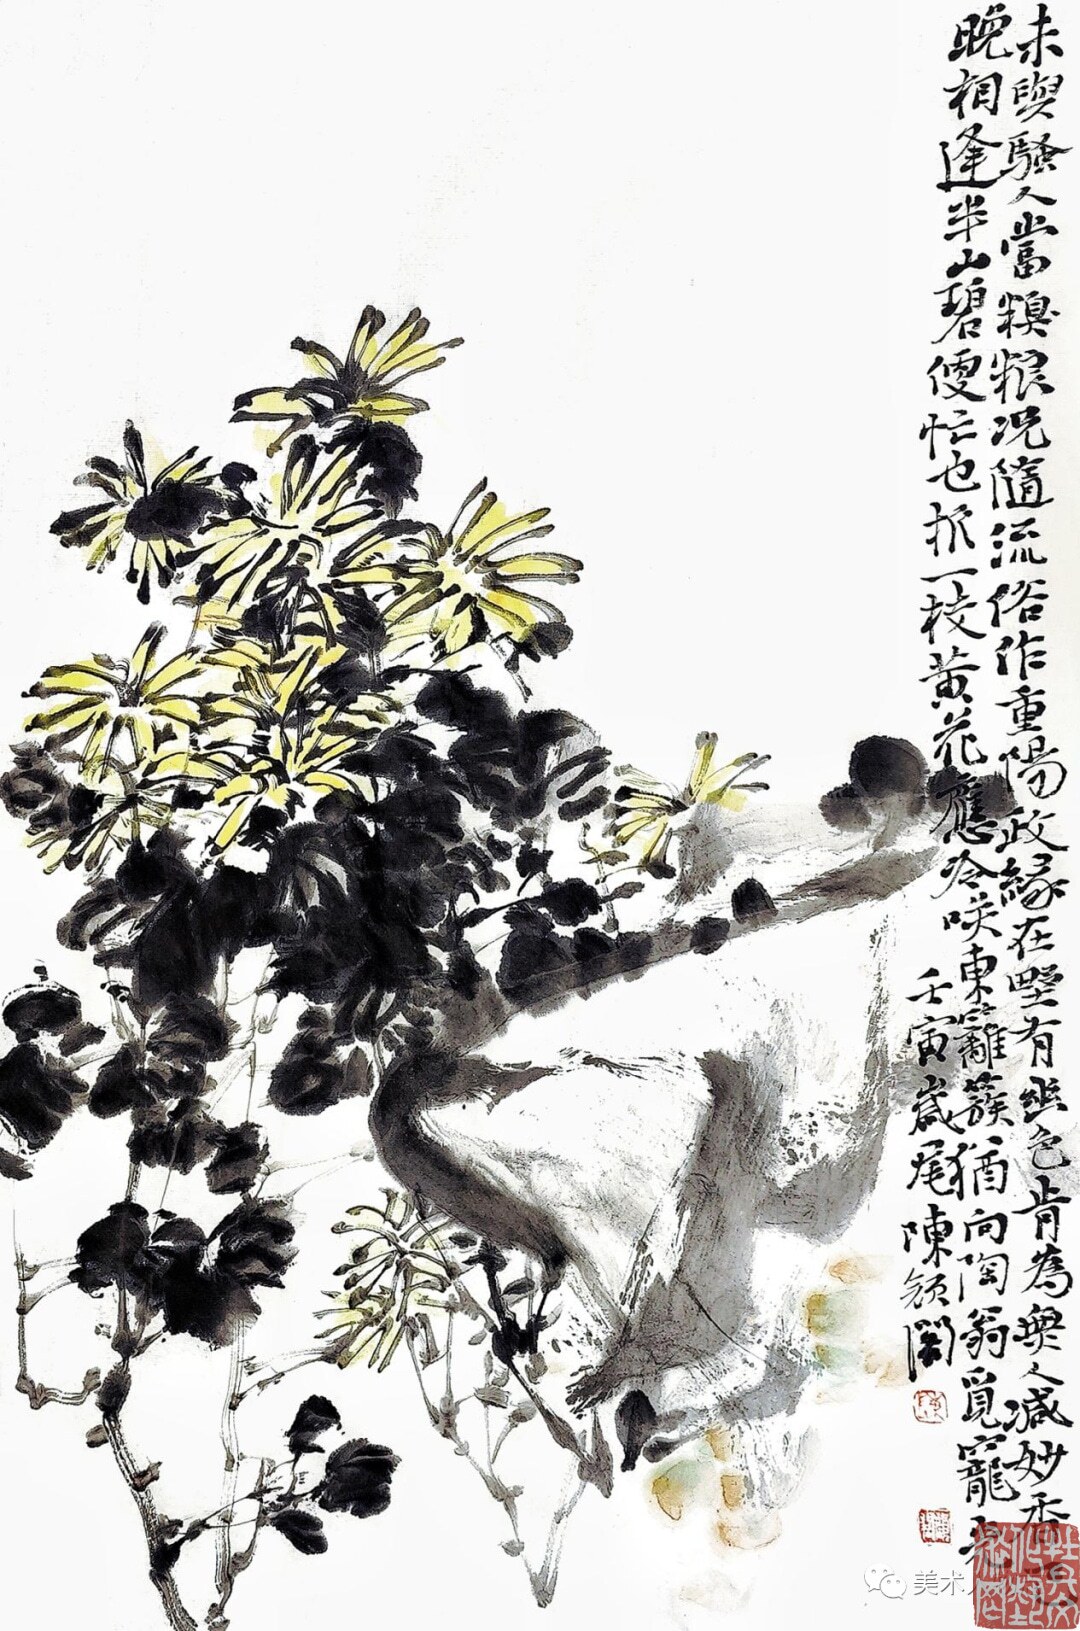 未與騷人當糗粮况隨流俗作重陽政緣在野有幽色肯為無人減妙香已
晚相逢半山碧便忙也折一枝黄花應冷咲東籬蔟猶向陶翁覓寵光
壬寅歲尾陳
美术